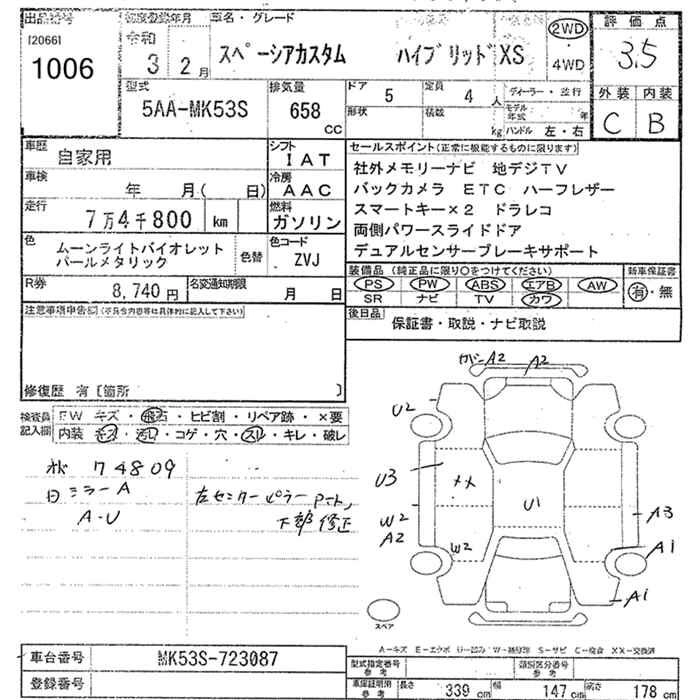 出品番号
[2066]
1006
初度登録年月
令和
3 2月
車名・グレード
スペーシアカスタム ハイブリッドXS
2WD
・
4WD
評価点
3.5
外装 内装
C B
型式
5AA-MK53S
排気量
658
cc
ドア
5
定員
4
人
形状
積数
kg
ディーラー・並行
モデル年式 年
ハンドル 左・右
車歴
自家用
シフト
IAT
車検
年 月( 日)
冷房
AAC
走行
7万4千800 km
燃料
ガソリン
色
ムーンライトバイオレット
パールメタリック
色替
色コード
ZVJ
R券
8,740円
名変通知期限
月 日
セールスポイント(正常に機能するものに限ります)
社外メモリーナビ 地デジTV
バックカメラ ETC ハーフレザー
スマートキー×2 ドラレコ
両側パワースライドドア
デュアルセンサーブレーキサポート
装備品(純正品に限り○をつけてください)
PS PW ABS エアB AW
SR ナビ TV カワ
新車保証書
有・無
後日品
保証書・取説・ナビ取説
注意事項申告欄(不具合内容等は具体的に記入して下さい)
修復歴 有〔箇所 〕
検査員
記入欄
FW キズ・飛石・ヒビ割・リペア跡・×要
内装 キズ・汚レ・コゲ・穴・スレ・キレ・破レ
74809
ミラーA
A-U
左センターピラー アート,
下部修正
カバーA2
A2
U2
U3
××
U1
W2
A2
W2
A3
A1
A1
スペア
A-キズ E-エクボ U-凹み W-補修跡 S-サビ C-腐食 XX-交換済
車台番号
MK53S-723087
登録番号
型式指定番号
参考
類別区分番号
参考
車庫証明用
参考
長さ 339 cm 幅 147 cm 高さ 178 cm